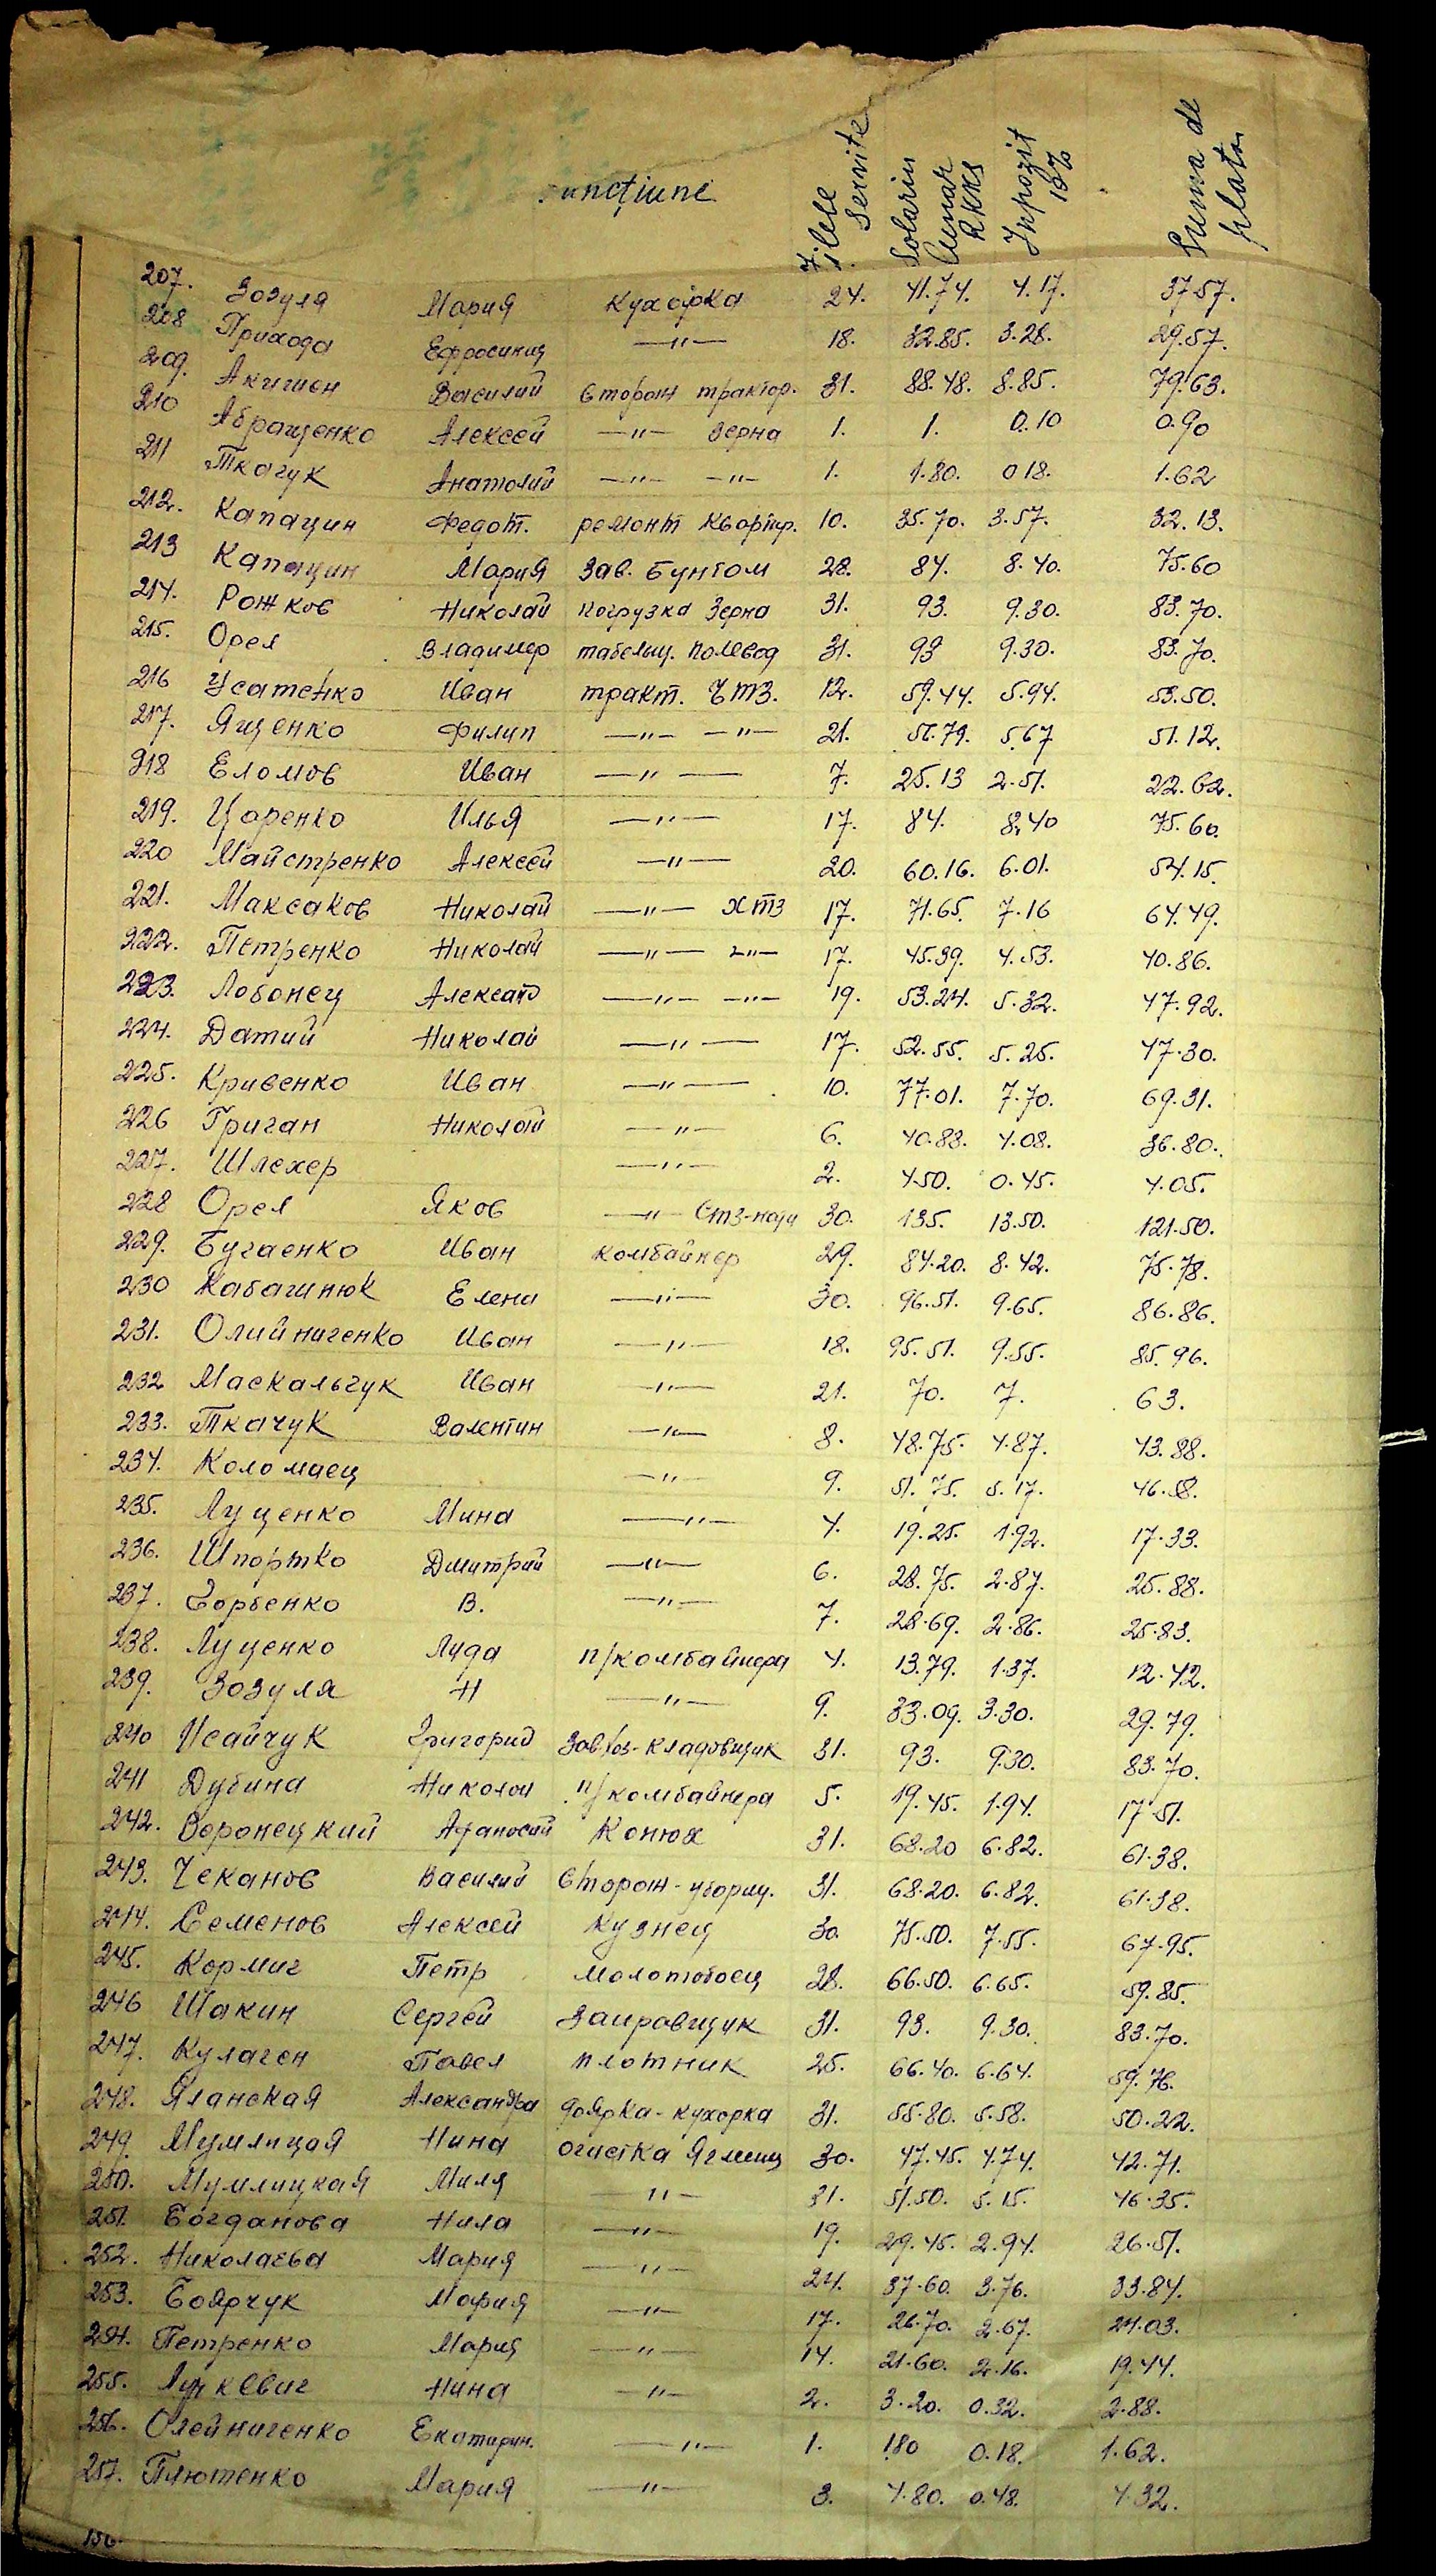 Funcțiune Zilele Servite Solariu Numar RKKS Inpozit 10% Suma de plata
207. Зозуля Мария Кухарка 24. 41.74. 4.17. 37.57.
208 Приходо Ефросиния —"— 18. 32.85. 3.28. 29.57.
209. Василий Сторож трактор. 31. 88.48. 8.85. 79.63.
210 Абращенко Алексей —"— Зерна 1. 1. 0.10 0.90
211 Ткачук Анатолий —"— —"— 1. 1.80. 0 18. 1.62
212. Капацин Федот. ремонт Квартир. 10. 35.70. 3.57. 32.13.
213 Капацин Мария Зав. Бунтом 28. 84. 8.40. 75.60
214. Рожков Николай погрузка Зерна 31. 93. 9.30. 83.70.
215. Орел Владимер табельщ. полевод 31. 93 9.30. 83.70.
216 Усатенко Иван тракт. ЧТЗ. 12. 59.44. 5.94. 53.50.
217. Ященко Филип —"— —"— 21. 56.79. 5.67 51.12.
218 Еломов Иван —"— 7. 25.13 2.51. 22.62.
219. Царенко Илья —"— 17. 84. 8.40 75.60.
220 Майстренко Алексей —"— 20. 60.16. 6.01. 54.15.
221. Максаков Николай —"— ХТЗ 17. 71.65. 7.16 64.49.
222. Петренко Николай —"— —"— 17. 45.39. 4.53. 40.86.
223. Лобонец Александ —"— —"— 19. 53.24. 5.32. 47.92.
224. Датий Николай —"— 17. 52.55. 5.25. 47.30.
225. Кривенко Иван —"— 10. 77.01. 7.70. 69.31.
226 Григан Николай —"— 6. 40.88. 4.08. 36.80.
227. Шлехер —"— 2. 4.50. 0.45. 4.05.
228 Орел Яков —"— СТЗ-нати 30. 135. 13.50. 121.50.
229. Бугаенко Иван комбайнер 29. 84.20. 8.42. 75.78.
230 Кабачинюк Елена —"— 30. 96.51. 9.65. 86.86.
231. Олийниченко Иван —"— 18. 95.51. 9.55. 85.96.
232 Маскальчук Иван —"— 21. 70. 7. 63.
233. Ткачук Валентин —"— 8. 48.75. 4.87. 43.88.
234. Коломаец —"— 9. 51.75. 5.17. 46.58.
235. Луценко Мина —"— 4. 19.25. 1.92. 17.33.
236. Шпортко Дмитрий —"— 6. 28.75. 2.87. 25.88.
237. Горбенко В. —"— 7. 28.69. 2.86. 25.83.
238. Луценко Луда п/комбайнера 4. 13.79. 1.37. 12.42.
239. Зозуля Н —"— 9. 33.09. 3.30. 29.79.
240 Исайчук Григорий Завхоз-Кладовщик 31. 93. 9.30. 83.70.
241 Дубина Николай п/комбайнера 5. 19.45. 1.94. 17.51.
242. Воронецкий Афаносий Конюх 31. 68.20 6.82. 61.38.
243. Чеканов Василий Сторож-уборщ. 31. 68.20. 6.82. 61.38.
244. Семенов Алексей Кузнец 30. 75.50. 7.55. 67.95.
245. Кормиг Петр молотобоец 28. 66.50. 6.65. 59.85.
246 Шакин Сергей Заправщик 31. 93. 9.30. 83.70.
247. Кулаген Павел плотник 25. 66.40. 6.64. 59.76.
248. Яланская Александра доярка-кухорка 31. 55.80. 5.58. 50.22.
249 Мумлицая Нина очистка 30. 47.45. 4.74. 42.71.
250. Мумлицкая Миля —"— 31. 51.50. 5.15. 46.35.
251. Богданова Нила —"— 19. 29.45. 2.94. 26.51.
252. Николаева Мария —"— 24. 37.60. 3.76. 33.84.
253. Боярчук Мария —"— 17. 26.70. 2.67. 24.03.
254. Петренко Мария —"— 14. 21.60. 2.16. 19.44.
255. Лункевич Нина —"— 2. 3.20. 0.32. 2.88.
256. Олейниченко Екатирин. —"— 1. 1.80 0.18. 1.62.
257. Плютенко Мария —"— 3. 4.80. 0.48. 4.32.